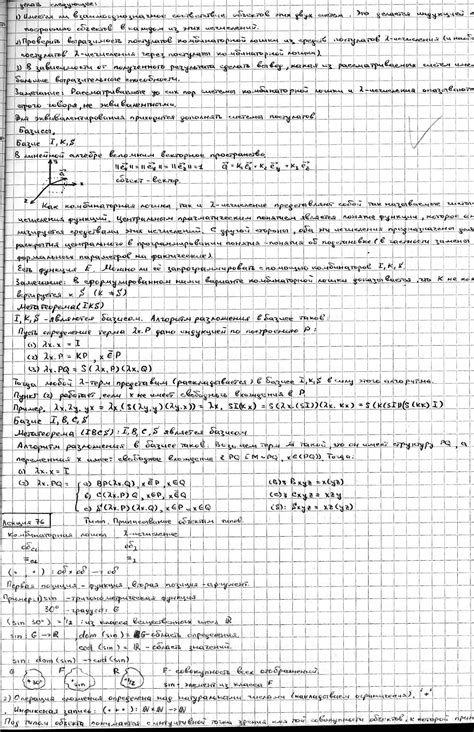 делать следующее:
1) Имеется ли взаимооднозначное соответствие объектов этих двух систем. Это делается индукцией по
построению объектов в каждом из этих исчислений.
2) Проверить выразимость постулатов комбинаторной логики из средств постулатов λ-исчисления (и наоборот
постулатов λ-исчисления через постулаты комбинаторной логики)
3) В зависимости от полученного результата сделать вывод, какая из рассматриваемых систем имеет
большие выразительные способности.
Замечание: Рассматриваемые до сих пор системы комбинаторной логики и λ-исчисления оказываются
строго говоря, не эквивалентными.
Для эквивалентирования приходится дополнять системы постулатов
Базисы.
Базис I, K, S
В линейной алгебре вспомним векторное пространство
объект - вектор.
Как комбинаторная логика, так и λ-исчисление представляют собой так называемые
исчисления функций. Центральным прагматическим понятием является понятие функции, которое
средствами этих исчислений. С другой стороны, оба эти исчисления предназначены для
раскрытия центрального в программировании понятия - понятия об подстановке (в частности замены
формальных параметров на фактические)
Есть функция F. Можно ли её запрограммировать с помощью комбинаторов I, K, S.
Замечание: В сформулированном нами варианте комбинаторной логики доказывается, что K не
вертируется к S (K ≠ S)
Метатеорема (IKS)
I, K, S - являются базисом. Алгоритм разложения в базисе таков:
Пусть определение терма λx.P дано индукцией по построению P:
(1) λx.x = I
(2) λx.P = KP, x ∉ P
(3) λx.PQ = S(λx.P)(λx.Q)
Тогда любой λ-терм представим (раскладывается) в базисе I, K, S в силу этого алгоритма.
Пункт (2) работает, если x не имеет свободных вхождений в P.
Пример λx.λy.yx = λx(S(λy.y)(λy.x)) = λx.SI(Kx) = S(λx.(SI))(λx.Kx) =
Базис I, B, C, S
Метатеорема (IBCS): I, B, C, S является базисом
Алгоритм разложения в базисе таков: Возьмем терм M такой, что он имеет структуру PQ, а
переменная x имеет свободное вхождение в PQ (M = PQ, x ∈ (PQ)). Тогда:
(1) λx.x = I
(2) λx.PQ = (а) BP(λx.Q), x ∉ P, x ∈ Q (B): Bxyz = x(yz)
(б) C(λx.P)Q, x ∈ P, x ∉ Q (C): Cxyz = xzy
(с) S(λx.P)(λx.Q), x ∈ P, x ∈ Q (S): Sxyz = xz(yz)
Лекция 76 Типы. Приписывание объектам типов
Комбинаторная логика λ-исчисление
(· ·) : об × об → об
Первая позиция - функция, вторая позиция - аргумент
Пример: 1) sin - тригонометрическая функция
30° - градусы: G
(sin 30°) = 1/2 : из класса вещественных чисел R
sin: G → R dom (sin) = G - область определения.
cod (sin) = R - область значений.
sin: dom (sin) → cod (sin)
G F R F - совокупность всех отображений.
30° sin 1/2 sin - элемент из класса F
2) Операция сложения определена над натуральными числами (накладываем ограничения), '+'
Инфиксная запись: (· + ·): N × N → N
Под типом объекта понимается с интуитивной точки зрения как той совокупности объектов, к которой